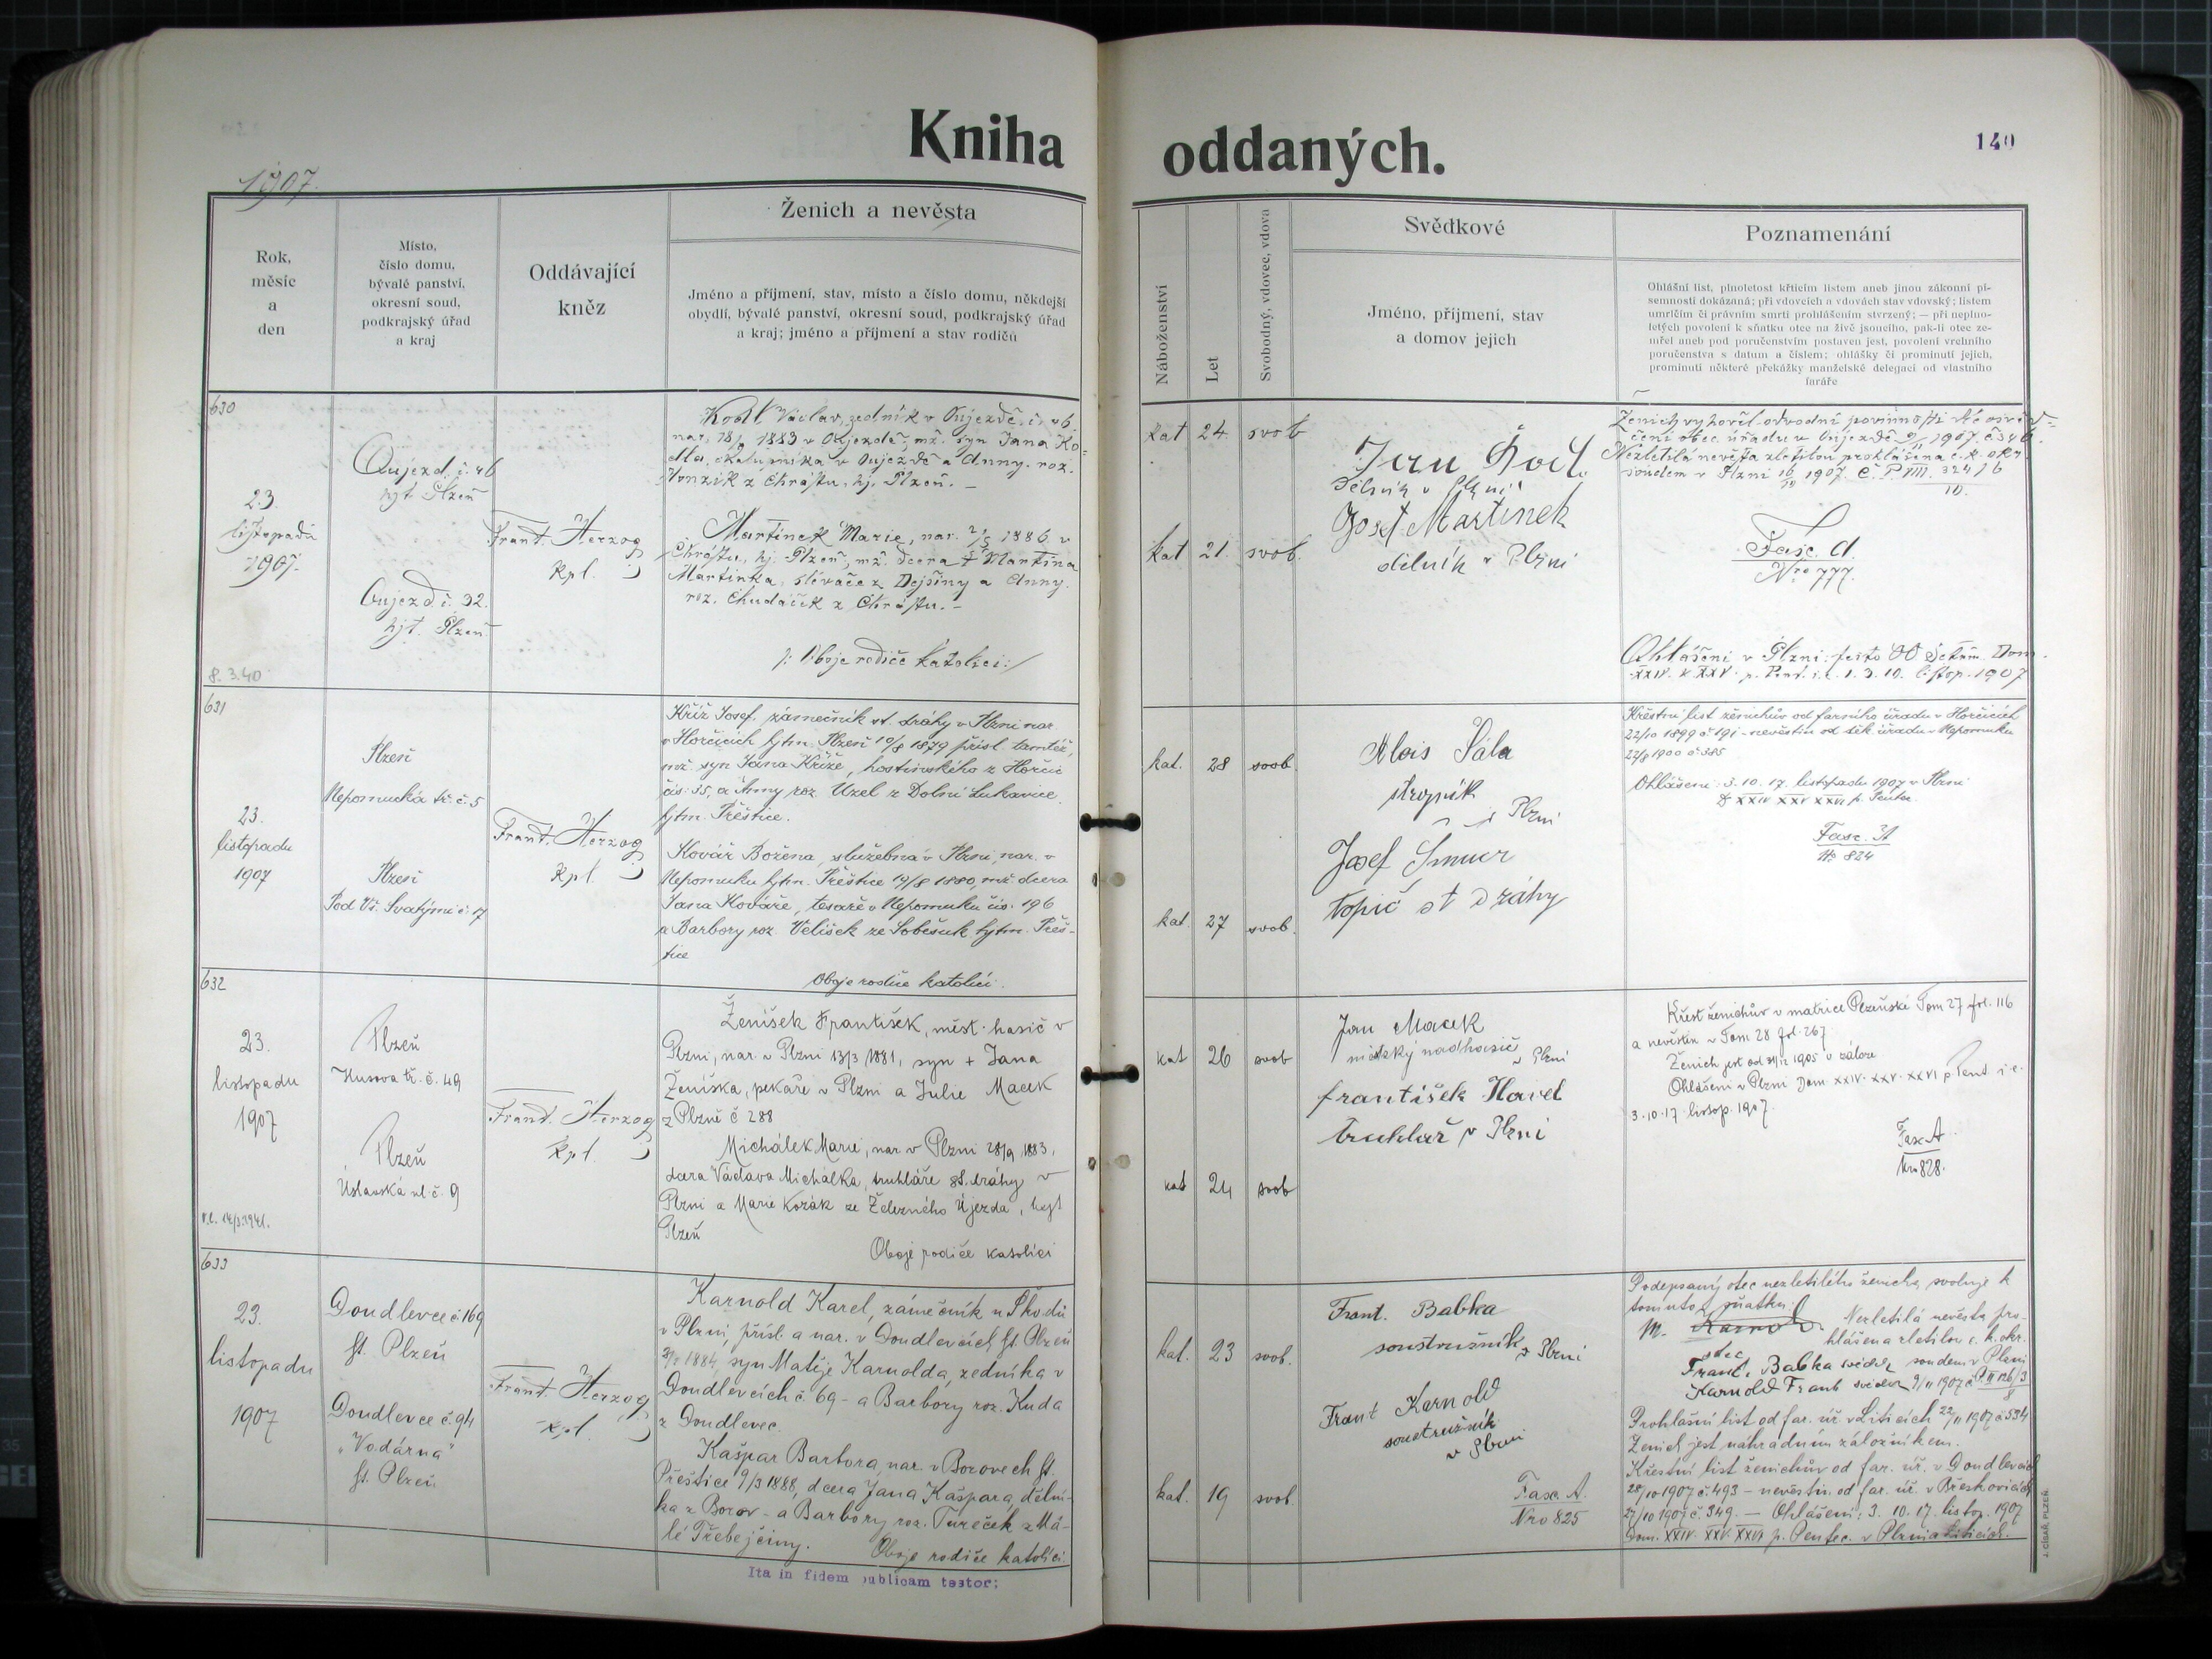 Kniha oddaných.
140
1907.
Rok,
měsíc
a
den
Místo,
číslo domu,
bývalé panství,
okresní soud,
podkrajský úřad
a kraj
Oddávající
kněz
Ženich a nevěsta
Jméno a příjmení, stav, místo a číslo domu, někdejší
obydlí, bývalé panství, okresní soud, podkrajský úřad
a kraj; jméno a příjmení a stav rodičů
Náboženství
Let
Svobodný, vdovec, vdova
Svědkové
Jméno, příjmení, stav
a domov jejich
Poznamenání
Ohlášní list, plnoletost křticím listem aneb jinou zákonní pí-
semností dokázaná; při vdovcích a vdovách stav vdovský; listem
umrlčím či právním smrti prohlášením stvrzený; — při neplno-
letých povolení k sňatku otce na živě jsoucího, pak-li otec ze-
mřel aneb pod poručenstvím postaven jest, povolení vrchního
poručenstva s datum a číslem; ohlášky či prominutí jejich,
prominutí některé překážky manželské delegací od vlastního
faráře
630
23.
listopadu
1907.
8. 3. 40
Oujezd. č. 46
hjt. Plzeň
Oujezd č. 32.
hjt. Plzeň
Frant. Herzog
kpl.
Václav, zedník v Oujezdě č. 46
nar. 1883 v Oujezdě, mž. syn Jana
v Oujezdě a Anny roz.
z Chrástu, hj. Plzeň. –
Martínek Marie, nar. 1886 v
Chrástu, hj. Plzeň, mž. dcera † Martina
Martínka, slévače z Dejšiny a Anny
roz. Chudáček z Chrástu. –
/: Oboje rodiče katolíci :/
kat 24 svob
kat 21 svob.
Jan
dělník v Plzni
Josef Martínek
dělník v Plzni
Ženich vyhověl odvodní povinnosti dle osvěd-
čení obec. úřadu v Oujezdě 1907. č. 546.
Nezletilá nevěsta zletilou prohlášena c. k. okr.
soudem v Plzni 1907 č. P. VIII. 324/6
10.
Fasc. A.
Nro 777.
Ohlášeni v Plzni: festo OO. Dom.
XXIV. & XXV. p. Pent. i. e. 1. 3. 10. listop. 1907
631
23.
listopadu
1907
Plzeň
Nepomucká tř. č. 5
Plzeň
Pod Vš. Svatými č. 17
Frant. Herzog
kpl.
Kříž Josef, zámečník st. dráhy v Plzni nar.
v Horčicích hjtm. Plzeň 10/8 1879 přísl. tamtéž,
mž. syn Jana Kříže, hostinského z Horčic
čís. 35, a Anny roz. Uzel z Dolní Lukavice,
hjtm. Přeštice.
Kovář Božena, služebná v Plzni, nar. v
Nepomuku hjtm. Přeštice 19/8 1880, mž. dcera
Jana Kováře, tesaře v Nepomuku čís. 196
a Barbory roz. Velíšek ze Soběsuk hjtm. Přeš-
tice
Oboje rodiče katolíci.
kat. 28 svob.
kat. 27 svob.
Alois Šála
strojník
v Plzni
Josef
topič st dráhy
Křestní list ženichův od farního úřadu v Horčicích
22/10 1899 č 191 – nevěstin od děk. úřadu v Nepomuku
27/8 1900 č. 385
Ohlášeni: 3. 10. 17. listopadu 1907 v Plzni
D XXIV XXV XXVI p. Pentec.
Fasc. A
No 824
632
23.
listopadu
1907
Plzeň
Husova tř. č. 49
Plzeň
Úslavská ul. č. 9
Frant. Herzog
kpl.
Ženíšek František, měst. hasič v
Plzni, nar. v Plzni 13/3 1881, syn + Jana
Ženíška, pekaře v Plzni a Julie Macek
z Plzně č 288
Michálek Marie, nar. v Plzni 28/9 1883,
dcera Václava Michálka, truhláře st. dráhy v
Plzni a Marie Kozák ze Železného Újezda, hejt
Plzeň
Oboje rodiče katolíci
kat 26 svob
kat 24 svob
Jan Macek
městský nadhasič
v Plzni
František Havel
truhlář v Plzni
Křest ženichův v matrice Plzeňské Tom 27 fol. 116
a nevěstin v Tom 28 fol. 267
Ženich jest od 31/12 1905 v záloze
Ohlášeni v Plzni Dom. XXIV. XXV. XXVI p. Pent. i. e.
3. 10. 17. listop. 1907.
Fasc A
Nro 828.
633
23.
listopadu
1907
Doudlevce č. 169
ht. Plzeň
Doudlevce č. 94
"Vodárna"
ht. Plzeň
Frant. Herzog
kpl.
Karnold Karel, zámečník u Škodů
v Plzni, přísl. a nar. v Doudlevcích ht. Plzeň
1884, syn Matěje Karnolda, zedníka v
Doudlevcích č. 69 – a Barbory roz. Kuda
z Doudlevec.
Kašpar Barbora, nar. v Borovech ht.
Přeštice 9/3 1888, dcera Jana Kašpara, dělní-
ka z Borov – a Barbory roz. Tureček z Ma-
lé Třebejčiny. Oboje rodiče katolíci
Ita in fidem publicam testor:
kat. 23 svob.
kat. 19 svob.
Frant. Babka
soustružník v Plzni
Frant Karnold
soustružník
v Plzni
Fasc. A.
Nro 825
Podepsaný otec nezletilého ženicha svoluje k
tomuto sňatku.
M. Karnold. Nezletilá nevěsta pro-
hlášena zletilou c. k. okr.
otec
Frant. Babka svědek soudem v Plzni
Karnold Frant svědek 9/11 1907 č.
Prohlášní list od far. úř. v Liticích 22/11 1907 č 534
Ženich jest náhradním záložníkem.
Křestní list ženichův od far. úř. v Doudlevcích
28/10 1907 č. 493 – nevěstin od far. úř. v Předkovicích
27/10 1907 č. 349. — Ohlášeni: 3. 10. 17. listop. 1907
Dom. XXIV. XXV. XXVI p. Pentec. v Plzni a Liticích.
J. CÍSAŘ, PLZEŇ.